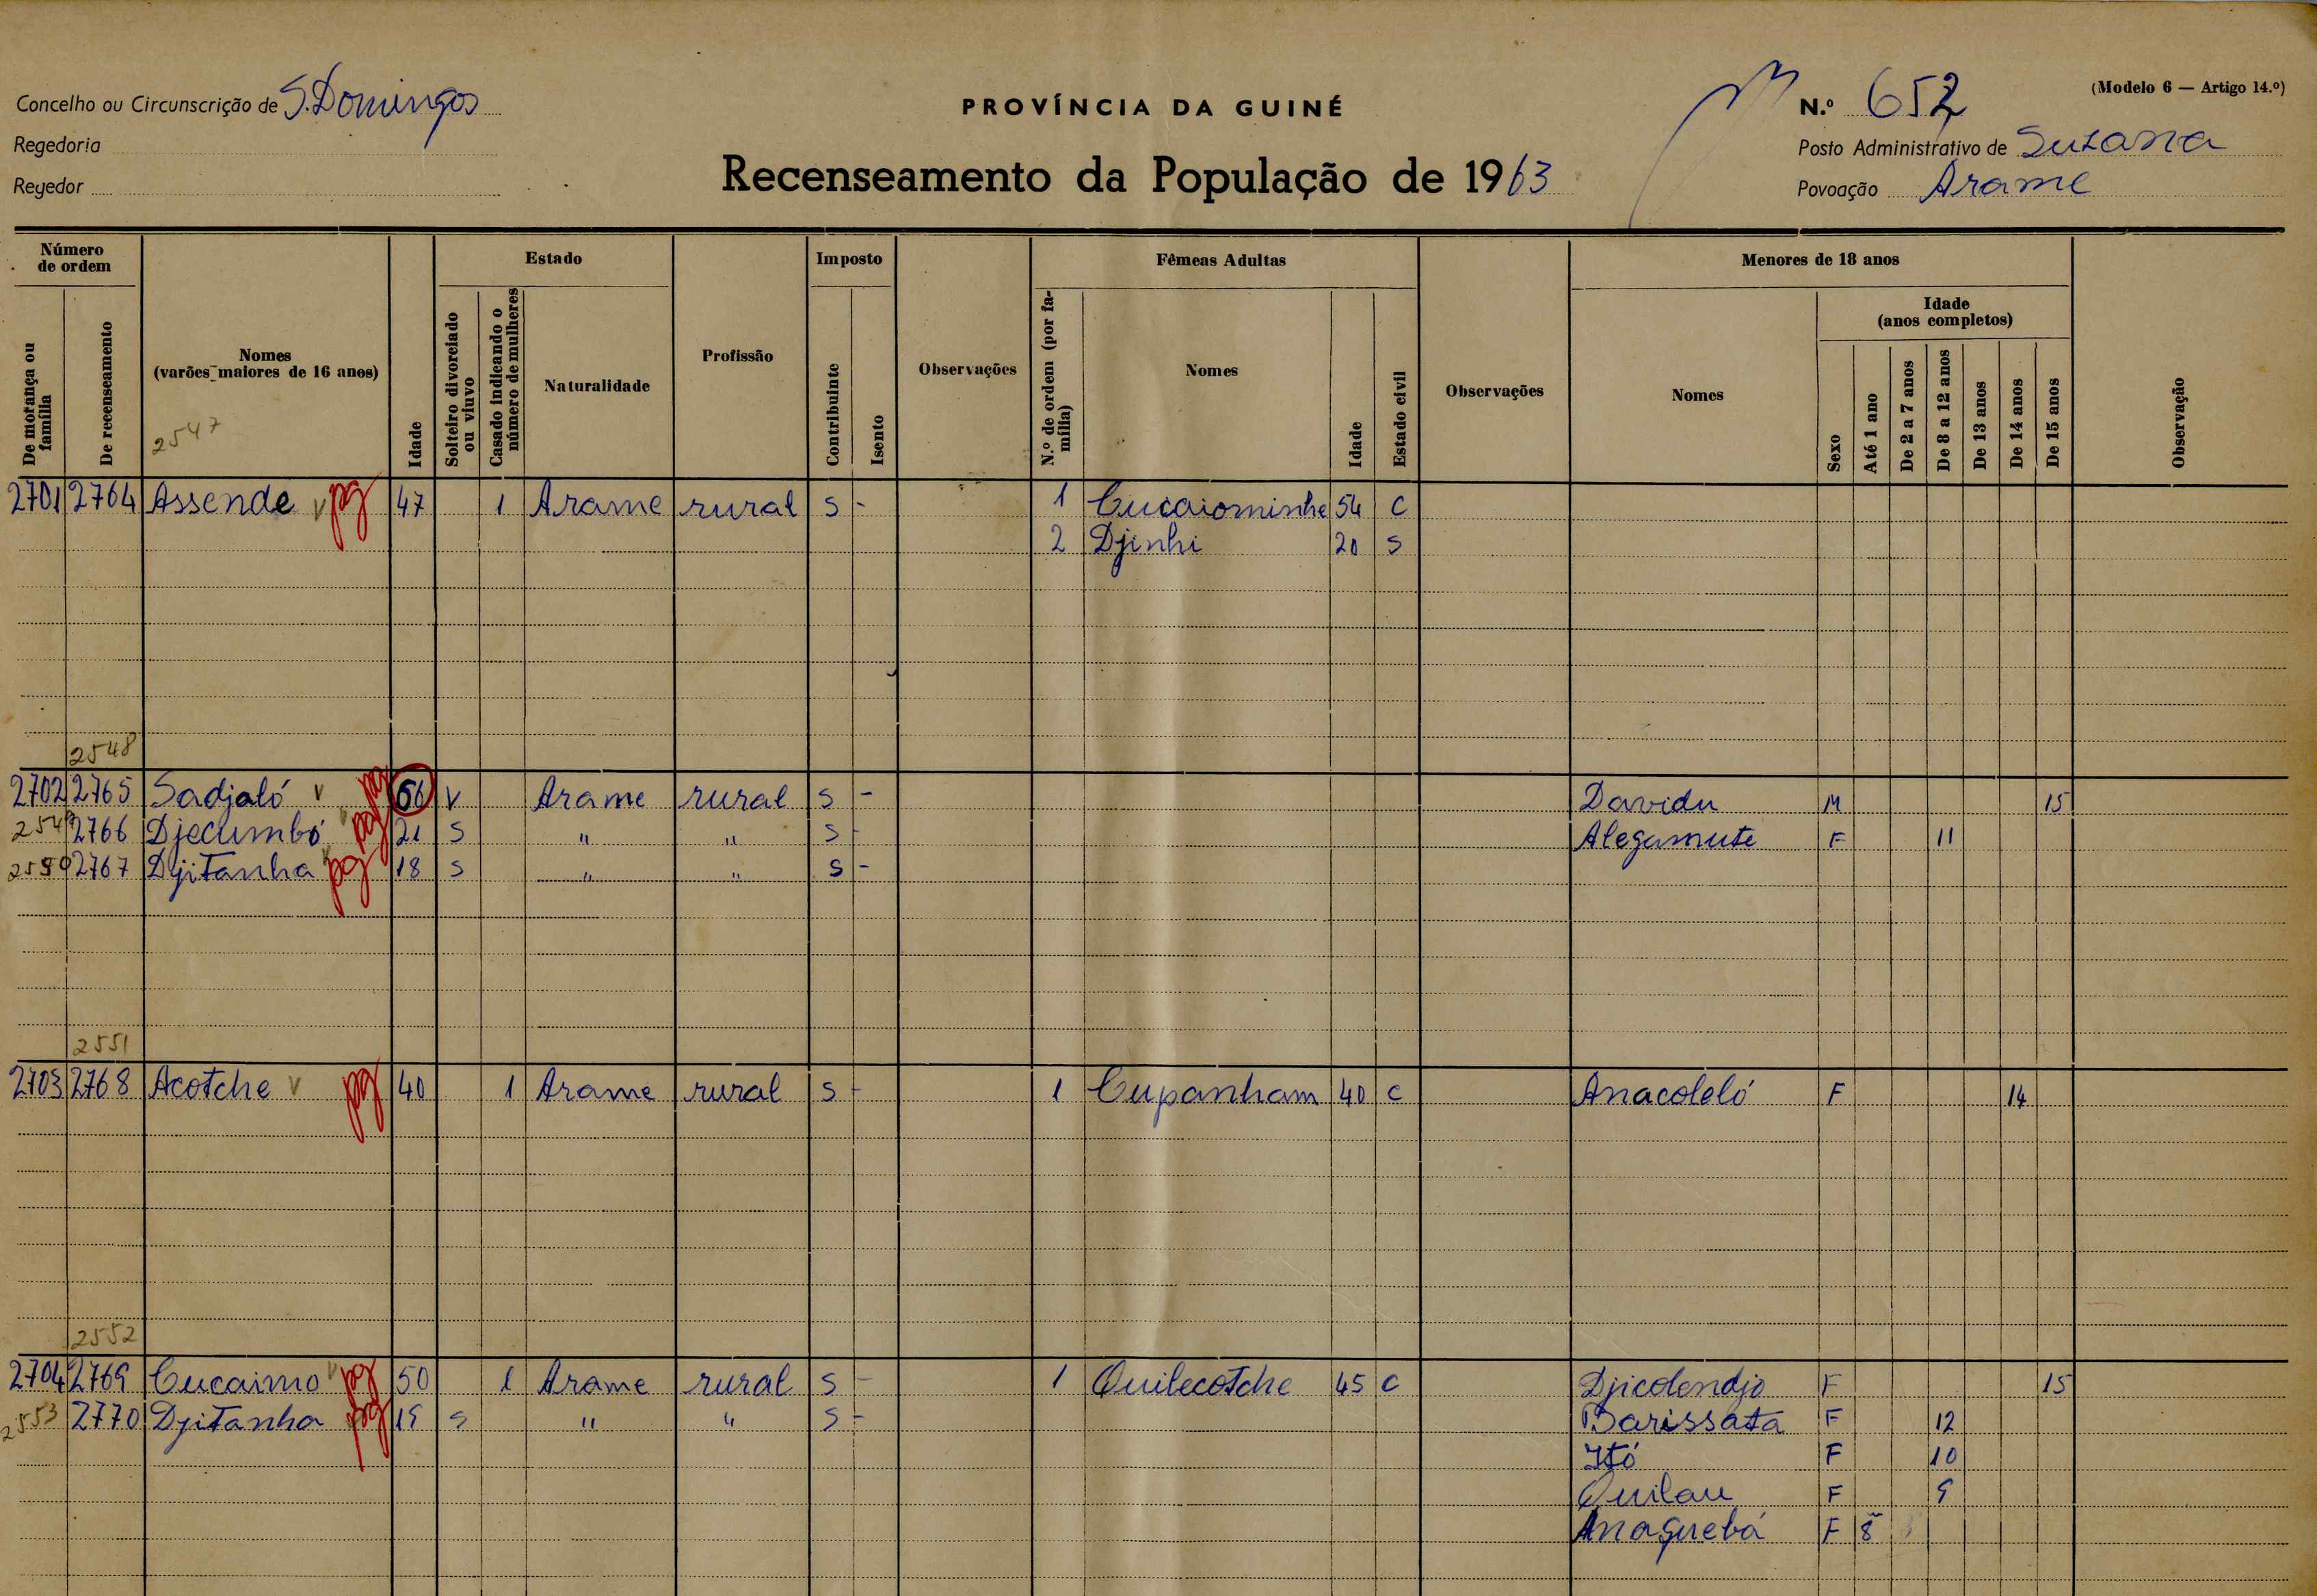 Concelho ou Circunscrição de S. Domingos
Regedoria
Regedor
PROVÍNCIA DA GUINÉ
Recenseamento da População de 1963
(Modelo 6 — Artigo 14.º)
N.º 652
Posto Administrativo de Suzana
Povoação Arame
Número de ordem
De morança ou família
De recenseamento
Nomes (varões maiores de 16 anos)
2547
Idade
Estado
Solteiro divorciado ou viuvo
Casado indicando o número de mulheres
Naturalidade
Profissão
Imposto
Contribuinte
Isento
Observações
Fêmeas Adultas
N.º de ordem (por família)
Nomes
Idade
Estado civil
Observações
Menores de 18 anos
Nomes
Sexo
Idade (anos completos)
Até 1 ano
De 2 a 7 anos
De 8 a 12 anos
De 13 anos
De 14 anos
De 15 anos
Observação
2701 2764 Assende v pg 47 1 Arame rural s - 1 Cucaiominhe 54 c
2 Djinhi 20 s
2548
2702 2765 Sadjaló v pg 56 v Arame rural s - Davidu M 15
2549 2766 Djecumbó v pg 21 s " " s - Alegamute F 11
2550 2767 Djitanha v pg 18 s " " s -
2551
2703 2768 Acotche v pg 40 1 Arame rural s - 1 Cupanham 40 c Anacoleló F 14
2552
2704 2769 Cucaimo v pg 50 1 Arame rural s - 1 Quilecotche 45 c Djicolendjo F 15
2553 2770 Djitanha pg 19 s " " s - Barissata F 12
Itó F 10
Quilau F 9
Anaguebá F 8